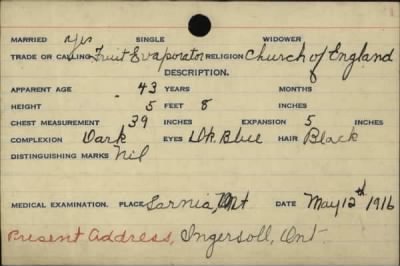 MARRIED Yes SINGLE WIDOWER
TRADE OR CALLING Fruit Evaporator RELIGION Church of England
DESCRIPTION.
APPARENT AGE 43 YEARS MONTHS
HEIGHT 5 FEET 8 INCHES
CHEST MEASUREMENT 39 INCHES EXPANSION 5 INCHES
COMPLEXION Dark EYES Dk. Blue HAIR Black
DISTINGUISHING MARKS Nil
MEDICAL EXAMINATION. PLACE Sarnia, Ont DATE May 12th 1916
Present Address, Ingersoll, Ont.